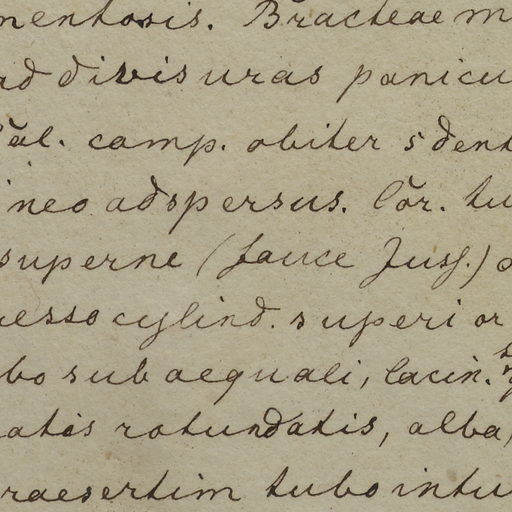 mentosis. Bracteae m
ad divisuras panicu
Cal. camp. obiter 5 dent
ineo adspersus. Cor. tu
superne (fauce Juss.)
resso cylind. superior
bo subaequali, lacin.
atis rotundatis, alba,
raesertim tubo intu